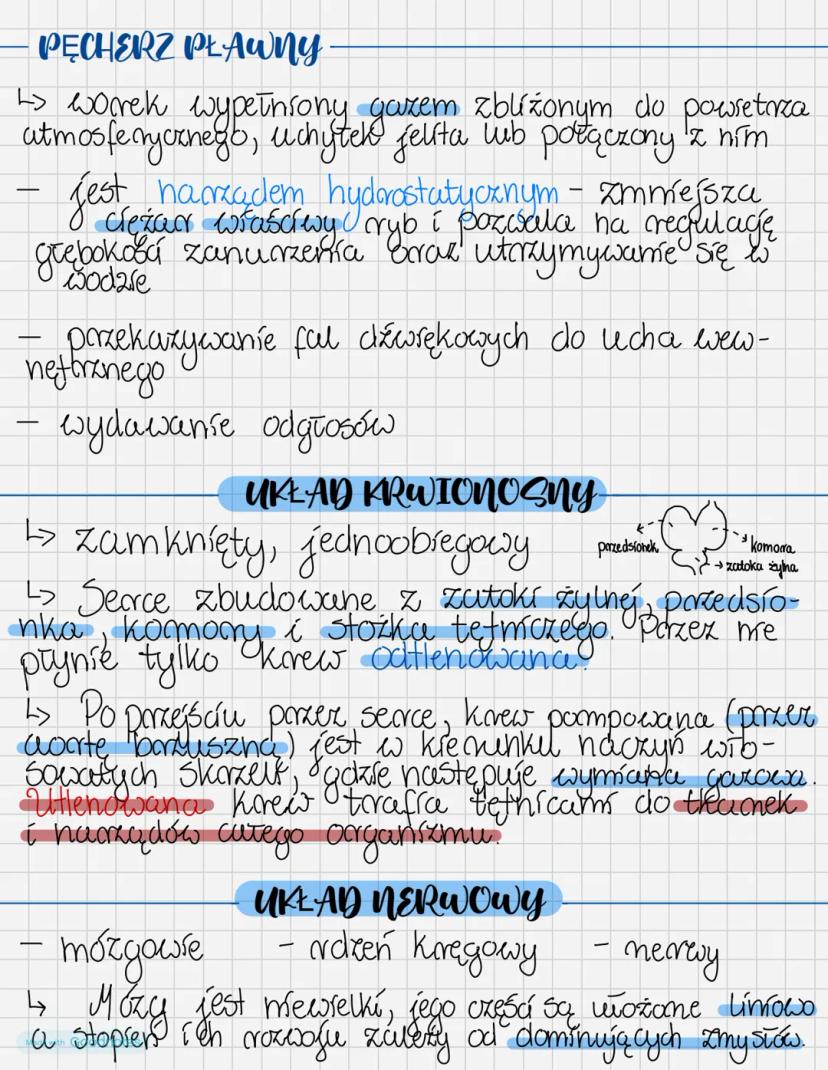 PĘCHERZ PŁAWNY
↳ worek wypełniony gazem zbliżonym do powietrza
atmosferycznego, uchyłek jelita lub połączony z nim
- jest narządem hydrostatycznym - zmniejsza
ciężar właściwy ryb i pozwala na regulację
głębokości zanurzenia oraz utrzymywanie się w
wodzie
- przekazywanie fal dźwiękowych do ucha wew-
nętrznego
- wydawanie odgłosów
UKŁAD KRWIONOSNY
↳ zamknięty, jednoobiegowy
przedsionek
komora
→ zatoka żylna
↳ Serce zbudowane z zatoki żylnej, przedsio-
nka, komory i stożka tętniczego. Przez nie
płynie tylko krew odtlenowana.
↳ Po przejściu przez serce, krew pompowana (przez
aortę brzuszną) jest w kierunku naczyń wło-
sowatych skrzeli, gdzie następuje wymiana gazowa.
Utlenowana krew trafia tętnicami do tkanek
i narządów całego organizmu.
UKŁAD NERWOWY
- mózgowie - rdzeń kręgowy - nerwy
↳ Mózg jest niewielki, jego części są ułożone liniowo
a stopień ich rozwoju zależy od dominujących zmysłów.
Made with Goodnotes